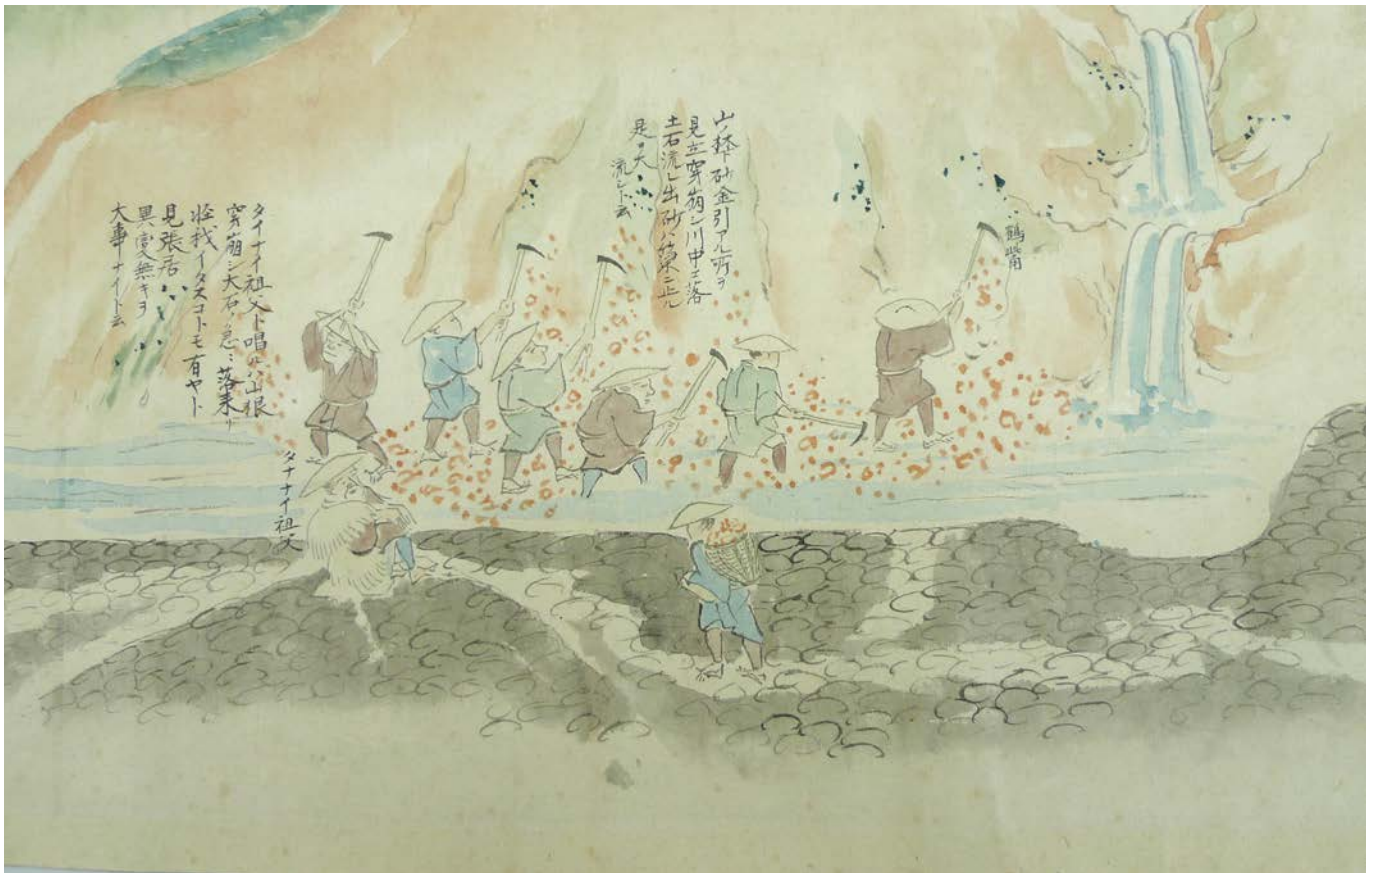 鶴觜
山ノ麓ト砂金引アル所ヲ
見立穿崩シ川中エ落
土石流レ出砂ハ簗ニ止ル
是ヲ大
流シト云
タイナイ祖父ト唱ルハ山根
穿崩シ大石ノ急ニ落来リ
怪我イタスコトモ有ヤト
見張居
異変無キヲ
大事ナイト云
タナナイ祖父